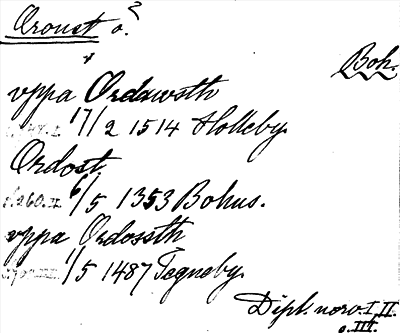 Oroust ö.?
Boh.
vppa Ordawsth
17/2 1514 Holleby.
Ordost
s. 260. II. 6/5 1353 Bohus.
vppa Ordossth
1/5 1487 Tegneby.
Dipl. norv. I, II.
o. III.